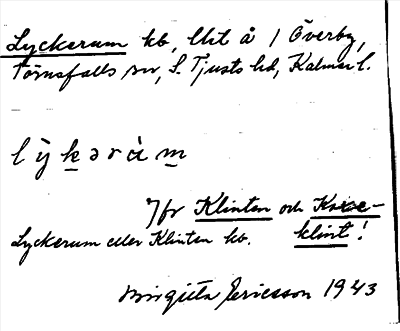 Lyckerum kb, Utt å 1 Överby,
Törnsfalls sn, S. Tjusts hd, Kalmar l.
l ỳ k ə r ù m
Jfr Klinten och
Lyckerum eller Klinten kb. klint!
Birgitta Ericsson 1943